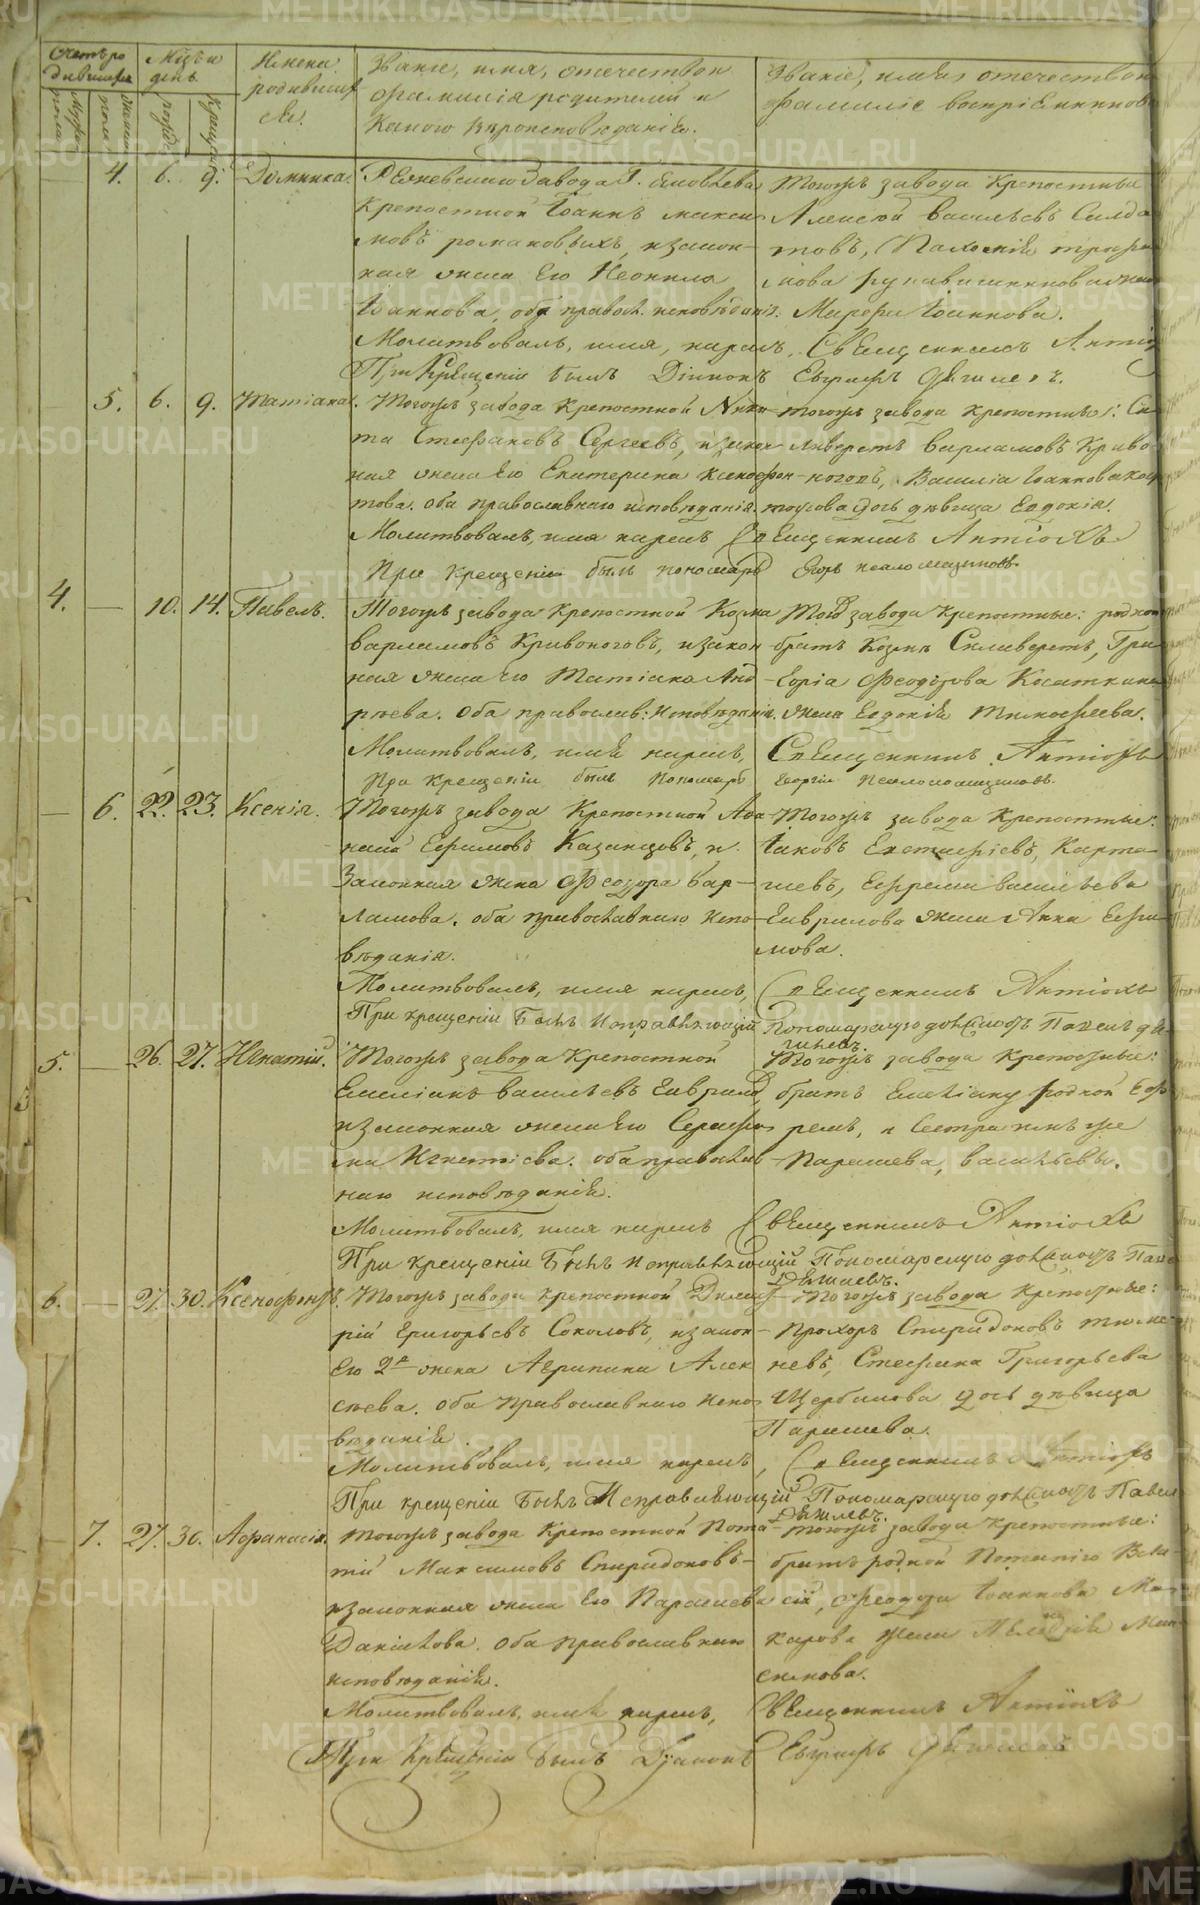 Счетъ родившихся
Мѣсяцъ и день
Имена родившихся.
Званіе, имя, отчество и
фамилія родителей и
какого вѣроисповѣданія.
Званіе, имя, отчество и
фамилія воспріемниковъ
мужеска пола
женска пола
рожденія
крещенія
4. 6. 9. Домника.
завода Г. Яковлева
крепостной Іоаннъ Макси
мовъ Романовыхъ, и закон
ная жена его Неонила
Іоаннова, оба правосл. исповѣданія.
Молитвовалъ, имя, нарилъ,
При Крещеніи былъ Діаконъ
Тогожъ завода крепостные
Алексѣй Васильевъ Солда
товъ,
мова Рукавишникова жена
Марфа Іоаннова.
Священникъ
Евграфъ
5. 6. 9. Татіана.
Тогожъ завода крепостной Ники
та Стефановъ Сергеевъ, и закон
ная жена его Екатерина Ксенофон
това. оба православнаго исповѣданія.
Молитвовалъ, имя нарилъ
При крещеніи былъ пономарь
тогожъ завода крепостные: Си
ливерстъ Варламовъ Криво
ноговъ, Василія Іоаннова
дочь дѣвица Евдокія.
Священникъ Антіохъ
4. — 10. 14. Павелъ.
Тогожъ завода крепостной Козма
Варламовъ Кривоноговъ, и закон
ная жена его Татіана Анд
рѣева. Оба православ: исповѣданія.
Молитвовалъ, имя нарилъ,
При крещеніи былъ Пономарь
завода крепостные: родной
братъ Козмы Силиверстъ, Гри
горія Феодорова Касаткина
жена Евдокія Тимофеева.
Священникъ Антіохъ
Георгій
— 6. 22. 23. Ксенія.
Тогожъ завода Крепостной Афа
насій Ефимовъ Казанцовъ, и
Законная жена Феодора Вар
ламова. оба православнаго испо
вѣданія.
Молитвовалъ, имя нарилъ,
При крещеніи былъ исправляющій
Тогожъ завода Крепостные:
Іаковъ Евстафіевъ, Карта
шевъ, Ефрема Васильева
Гаврилова жена Анна Ефи
мова.
Священникъ Антіохъ
Пономарскую должность Павелъ
5. 26. 27. Игнатій.
Тогожъ завода крепостной
Емеліанъ Васильевъ Гаврилов
и законная жена его Серафи
ма Игнатіева. оба православ
наго исповѣданія.
Молитвовалъ, имя нарилъ
При крещеніи былъ исправляющій
Тогожъ завода крепостные:
братъ Емеліану родной Еф
ремъ, и сестра имъ же
Параскева, Васильевы.
Священникъ Антіохъ
Пономарскую должность Паве
6. — 27. 30. Ксенофонтъ.
Тогожъ завода крепостной Димит
рій Григорьевъ Соколовъ, и закон
его 2я жена Агрипина Алек
сѣева. оба православнаго испо
вѣданія.
Молитвовалъ, имя нарилъ,
При крещеніи былъ исправляющій
Тогожъ завода крепостные:
Прохоръ Спиридоновъ Тюме
невъ, Стефана Григорьева
Щербакова дочь дѣвица
Парасева.
Священникъ Антіохъ
Пономарскую должность Павелъ
— 7. 27. 30. Афанасія.
Тогожъ завода крепостной Пота
пій Максимовъ Спиридоновъ
и законная жена его Парасева
Даніилова. Оба православнаго
исповѣданія.
Молитвовалъ, имя нарилъ,
При Крещеніи былъ Діаконъ
тогожъ завода крепостные:
братъ родной Потапію Васи
сій, Феодора Іоаннова Ма
карова жена
симова.
Священникъ Антіохъ
Евграфъ
METRIKI.GASO-URAL.RU